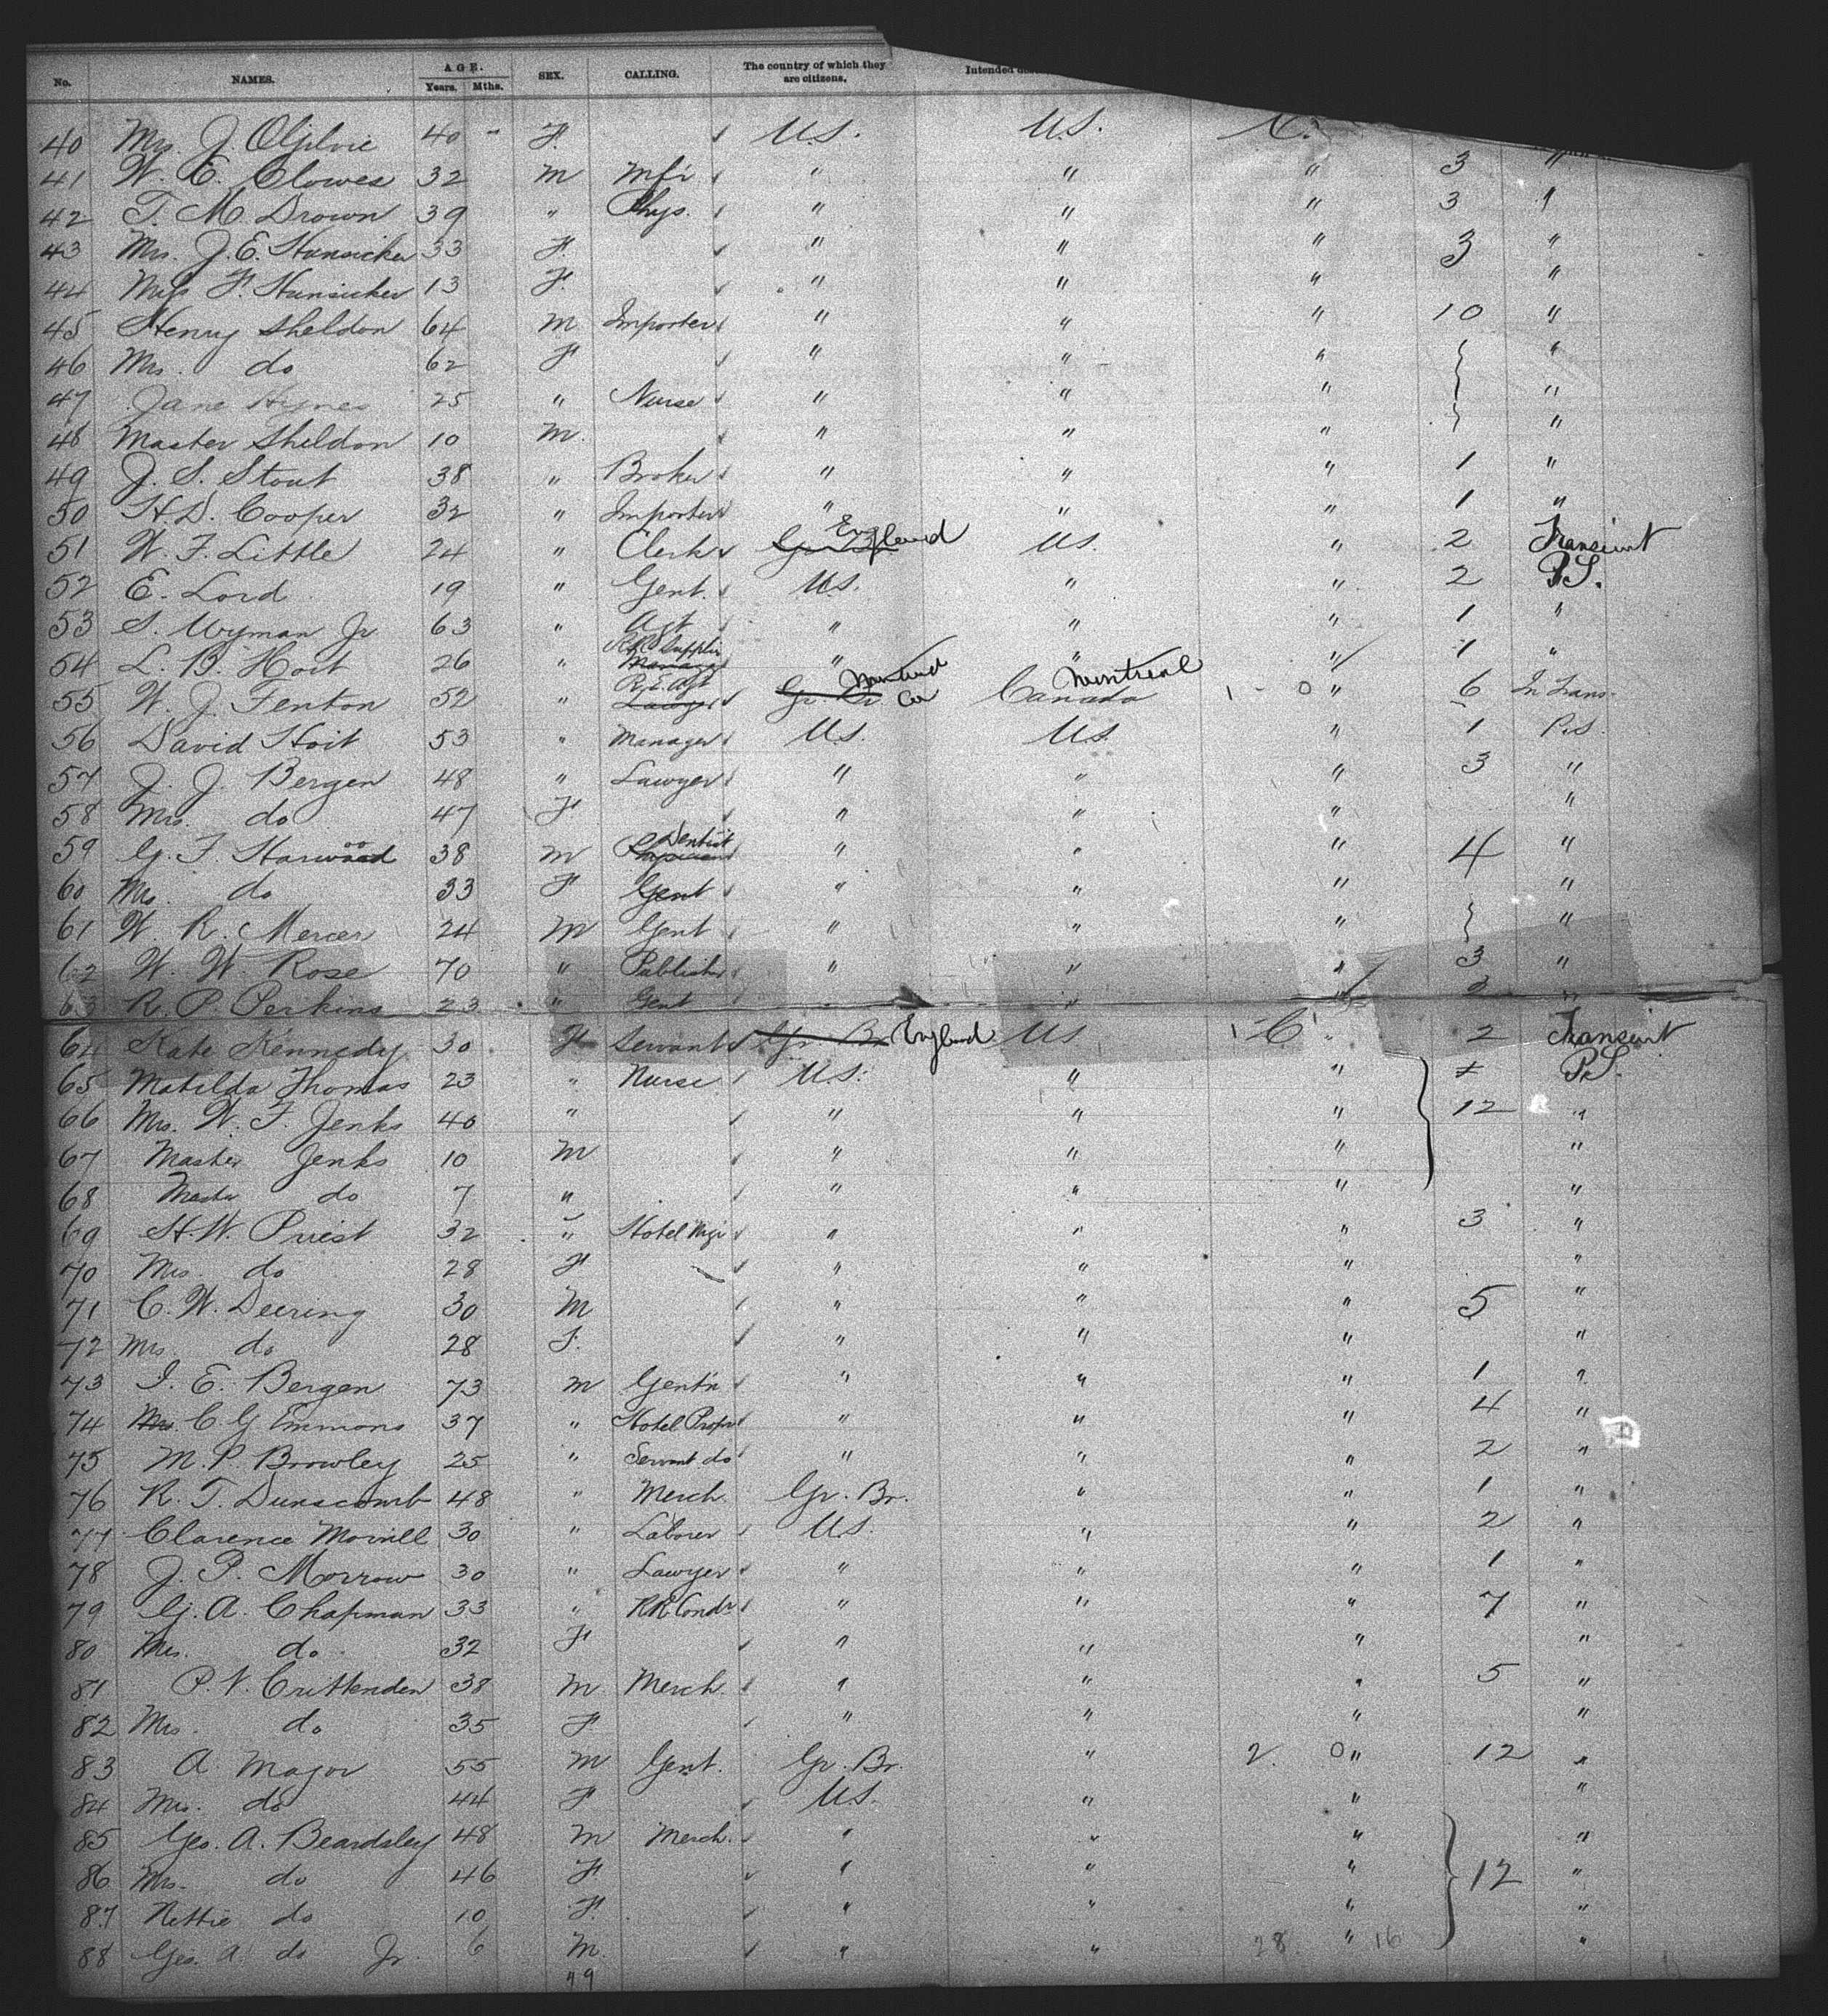 No. NAMES. AGE. Years. Mths. SEX. CALLING. The country of which they are citizens. Intended
40 Mrs. J. Ogilvie 40 - F. U.S. U.S. C.
41 W. E. Clowes 32 M Mfr " " " 3 "
42 T. M. Drown 39 " Phys. " " " 3 "
43 Mrs. J. E. Hunsicker 33 F. " " " 3 "
44 Miss F. Hunsicker 13 F. " " " "
45 Henry Sheldon 64 M Importer " " " 10 "
46 Mrs. do 62 F " " " "
47 Jane Hynes 25 " Nurse " " " "
48 Master Sheldon 10 M. " " " "
49 J. S. Stout 38 " Broker " " " 1 "
50 H. D. Cooper 32 " Importer " " " 1 "
51 W. F. Little 24 " Clerk Gr. Br England U.S. " 2 Transient
52 E. Lord 19 " Gent. U.S. " " 2 P.S.
53 S. Wyman Jr 63 " Agt " " " 1 "
54 L. B. Hoit 26 " RR Supplies Manager " " " 1 "
55 W. J. Fenton 52 " R.E. Agt Lawyer Gr. Br Montreal Ca Canada Montreal 1 - 0 " 6 In Trans.
56 David Hoit 53 " Manager U.S. U.S. " 1 P.S.
57 J. J. Bergen 48 " Lawyer " " " 3 "
58 Mrs. do 47 F " " " "
59 G. F. Harwood 38 M Dentist Physician " " " 4 "
60 Mrs. do 33 F Gent " " " "
61 W. R. Mercer 24 M Gent " " " "
62 W. W. Rose 70 " Publisher " " " 3 "
63 R. P. Perkins 23 " Gent " " " 2 "
64 Kate Kennedy 30 F Servant Gr. Br England US 1 - C " 2 Transient
65 Matilda Thomas 23 " Nurse U.S. " " P.S.
66 Mrs. W. F. Jenks 40 " " " " 12 "
67 Master Jenks 10 M " " " "
68 Master do 7 " " " " "
69 H. W. Priest 32 " Hotel Mgr " " " 3 "
70 Mrs. do 28 F " " " "
71 C. W. Deering 30 M " " " 5 "
72 Mrs. do 28 F. " " " "
73 I. E. Bergen 73 M Gent'n " " " 1 "
74 Mrs. C. G. Emmons 37 " Hotel Propr " " " 4 "
75 M. P. Browley 25 " Servant do " " " 2 "
76 R. T. Dunscomb 48 " Merch Gr. Br. " " 1 "
77 Clarence Morrill 30 " Laborer U.S. " " 2 "
78 J. P. Morrow 30 " Lawyer " " " 1 "
79 G. A. Chapman 33 " RR Condr " " " 7 "
80 Mrs. do 32 F " " " "
81 P. V. Crittenden 38 M Merch. " " " 5 "
82 Mrs. do 35 F " " " "
83 A Major 55 M Gent. Gr. Br. " 2. 0 " 12 "
84 Mrs. do 44 F U.S. " " "
85 Geo. A. Beardsley 48 M Merch. " " " "
86 Mrs. do 46 F " " " 12 "
87 Nettie do 10 F. " " " "
88 Geo. A. do Jr. 6 M. " " 28 " 16 "
49